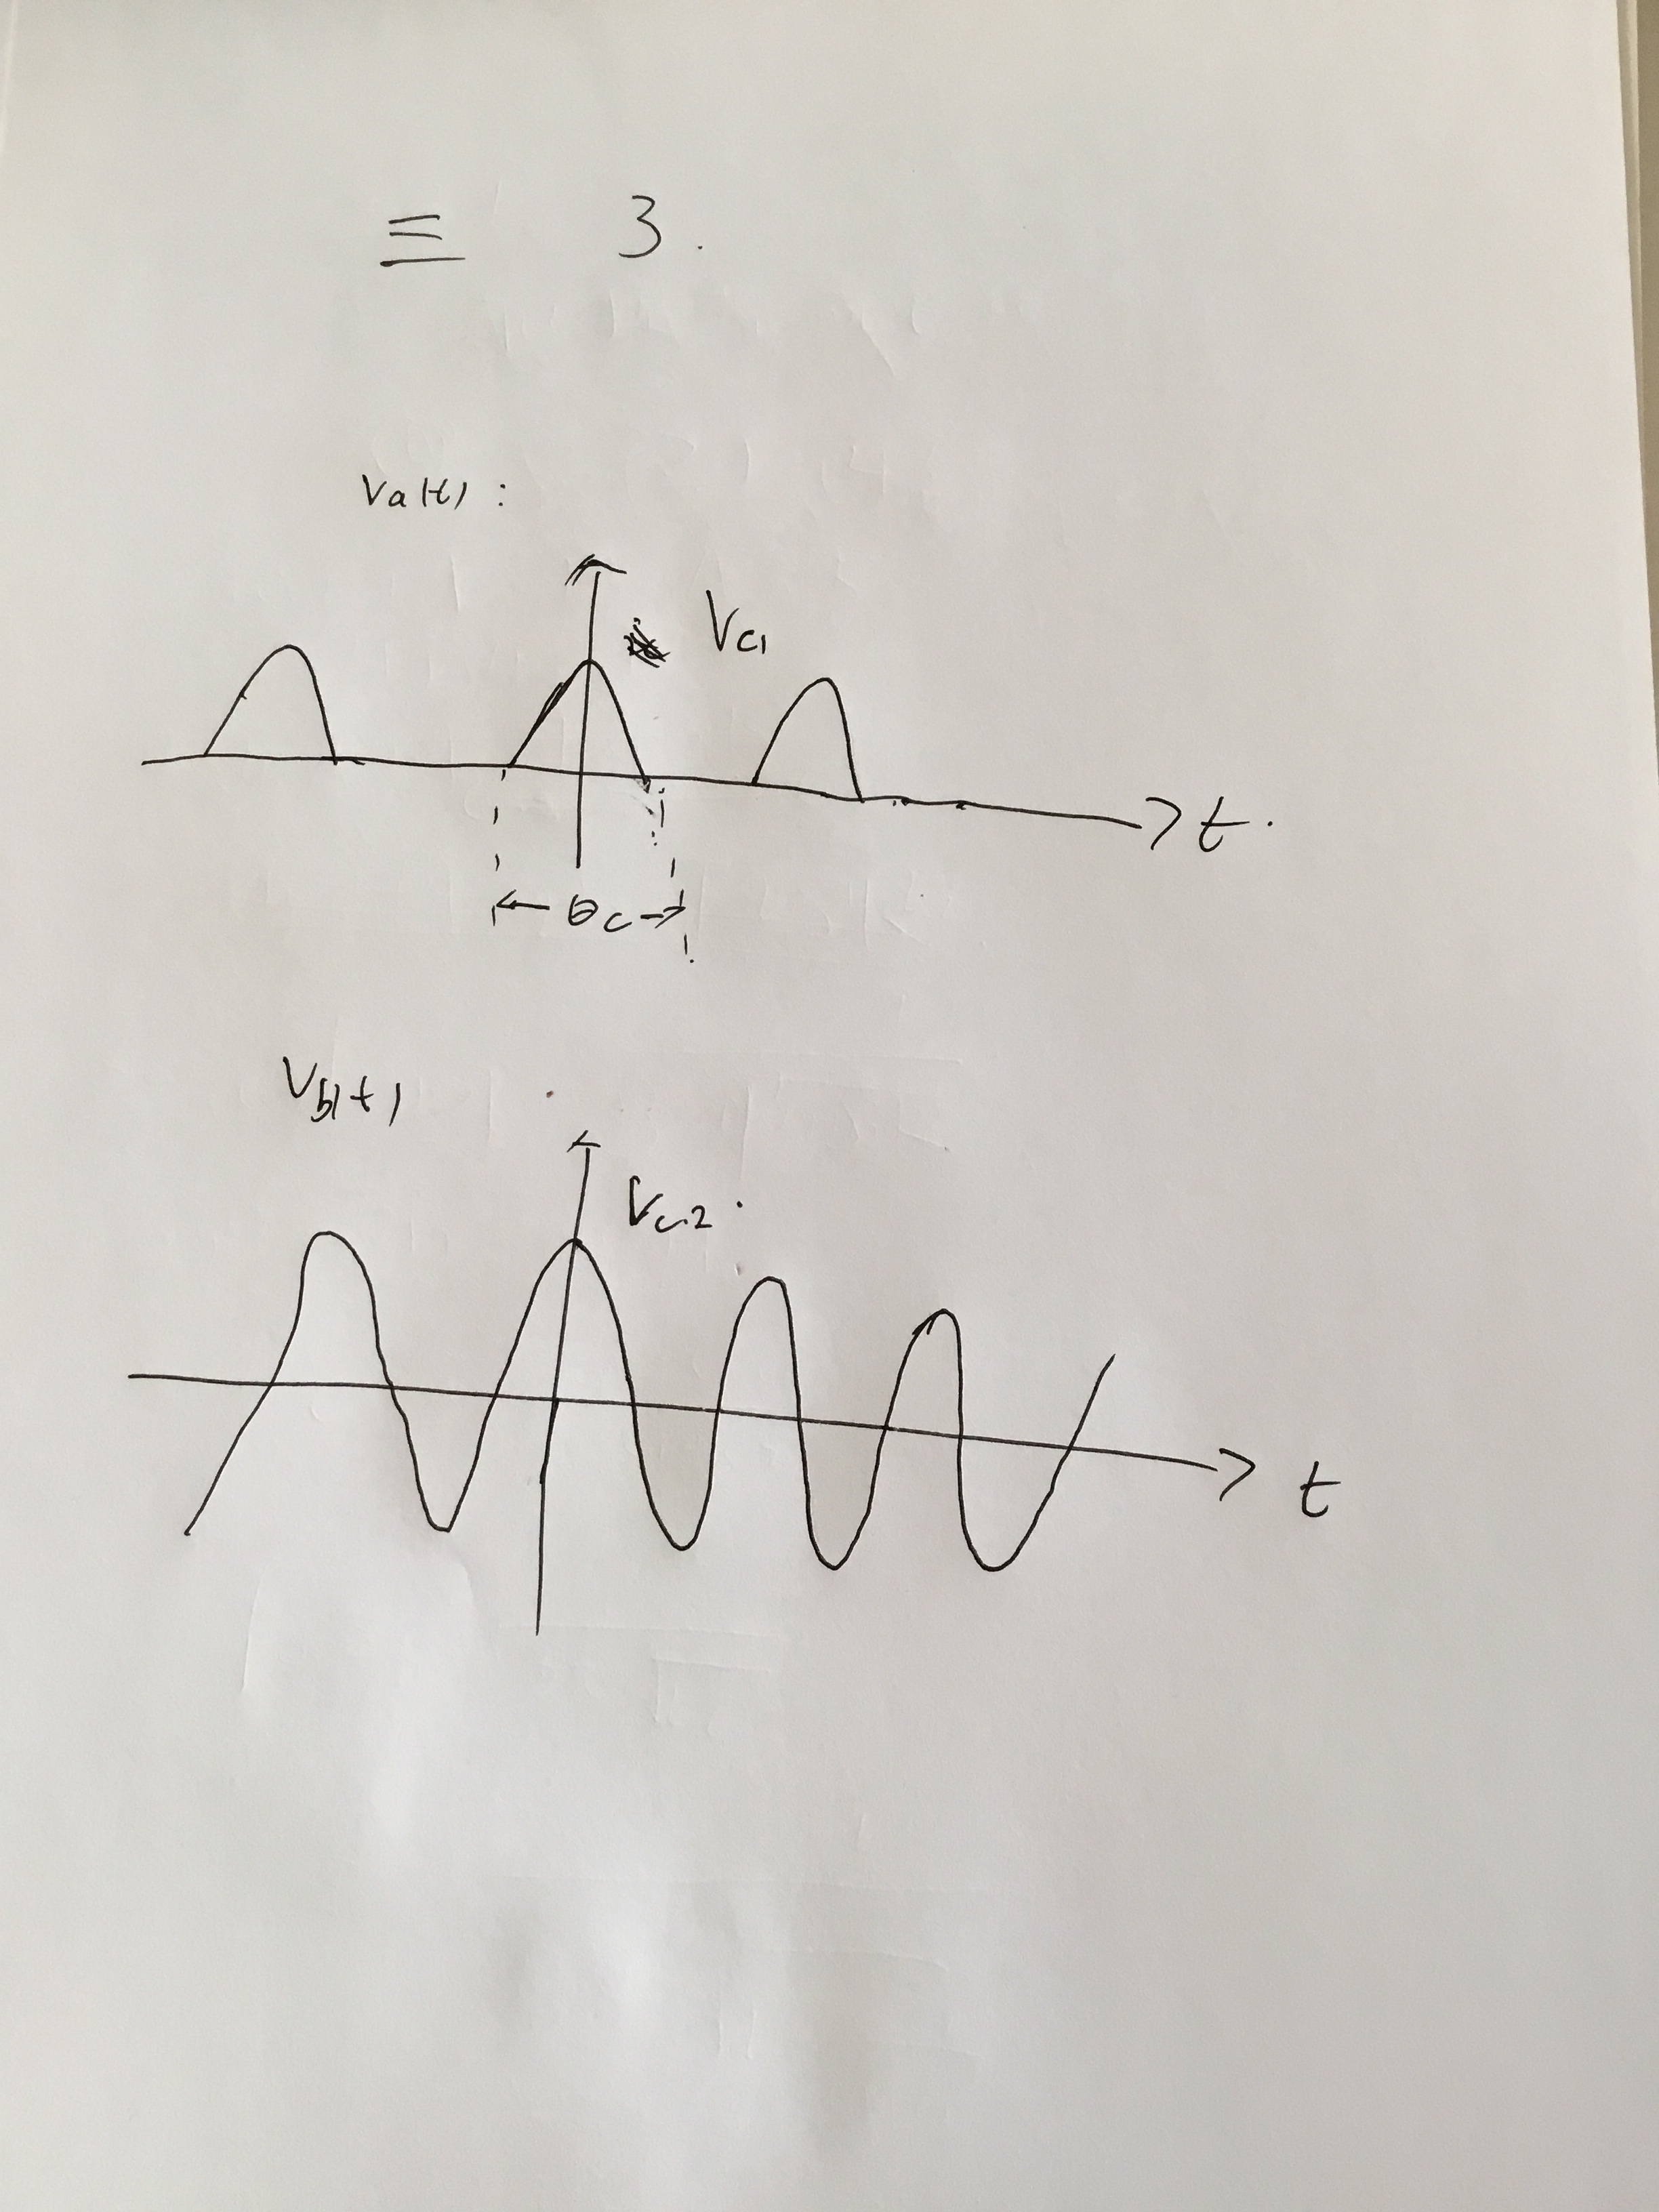 三 3.
Va(t):
Vc1
t.
θc
Vb(t)
Vc.2.
t